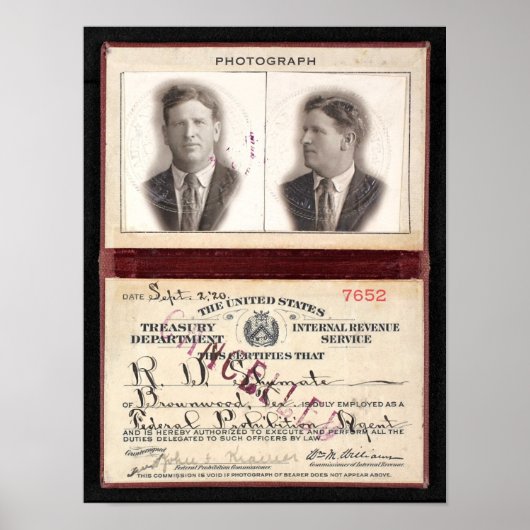 PHOTOGRAPH
DATE Sept. 2, '20. 7652
THE UNITED STATES
TREASURY DEPARTMENT INTERNAL REVENUE SERVICE
THIS CERTIFIES THAT
CANCELLED
R. D. Shumate
OF Brownwood, Tex. IS DULY EMPLOYED AS A
Federal Prohibition Agent
AND IS HEREBY AUTHORIZED TO EXECUTE AND PERFORM ALL THE
DUTIES DELEGATED TO SUCH OFFICERS BY LAW.
Countersigned
John F. Kramer Wm M. Williams
Federal Prohibition Commissioner. Commissioner of Internal Revenue.
THIS COMMISSION IS VOID IF PHOTOGRAPH OF BEARER DOES NOT APPEAR ABOVE.